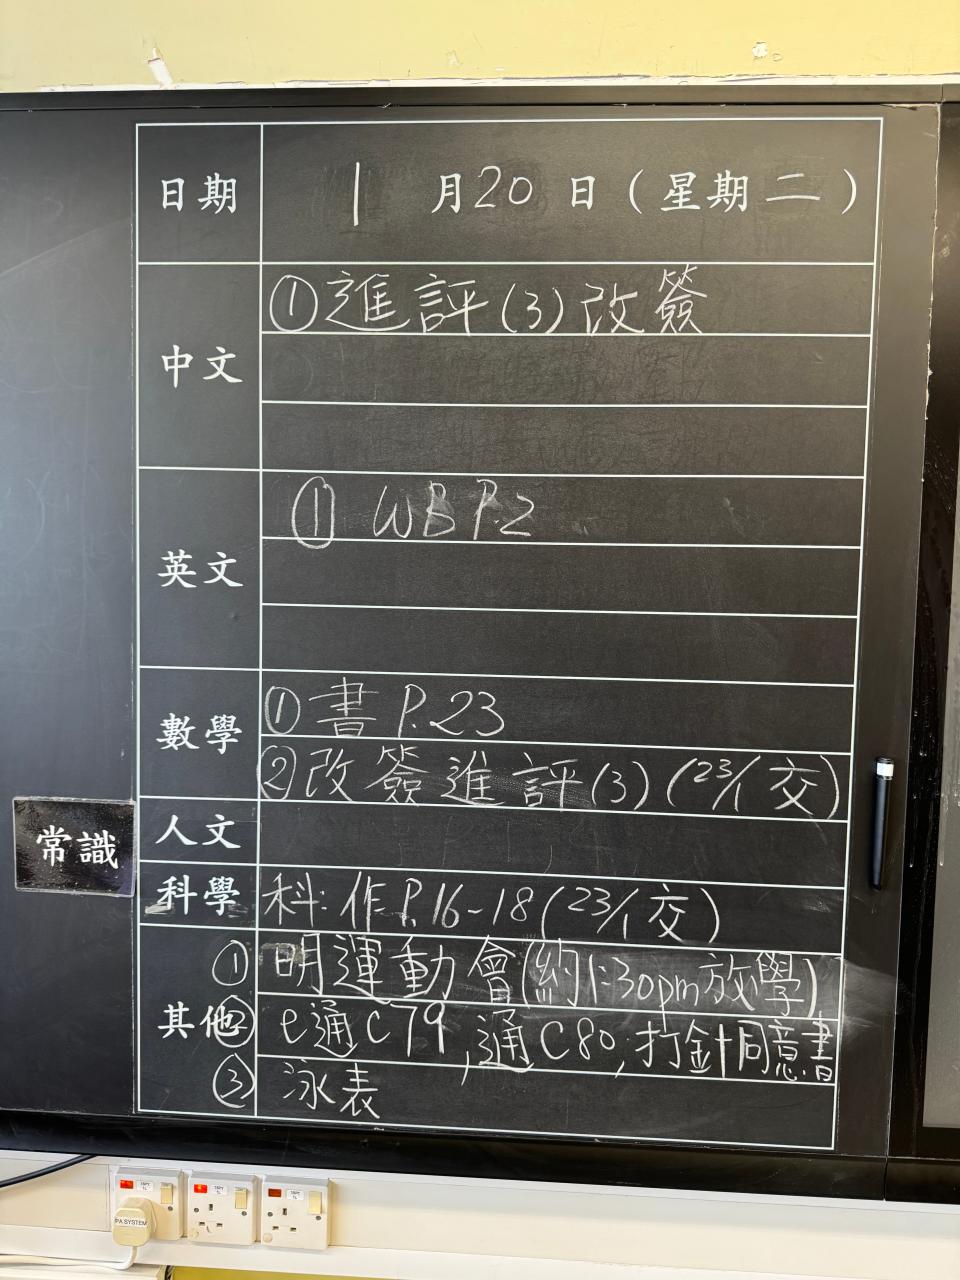 日期 1月20日(星期二)
中文 ①進評(3)改簽
英文 ① WB P.2
數學 ①書 P.23
②改簽進評(3)(23/1交)
人文
常識
科學 科:作P.16-18(23/1交)
其他 ①明運動會(約1:30pm放學)
② e通C79,通C80;打針同意書
③ 泳表
PA SYSTEM